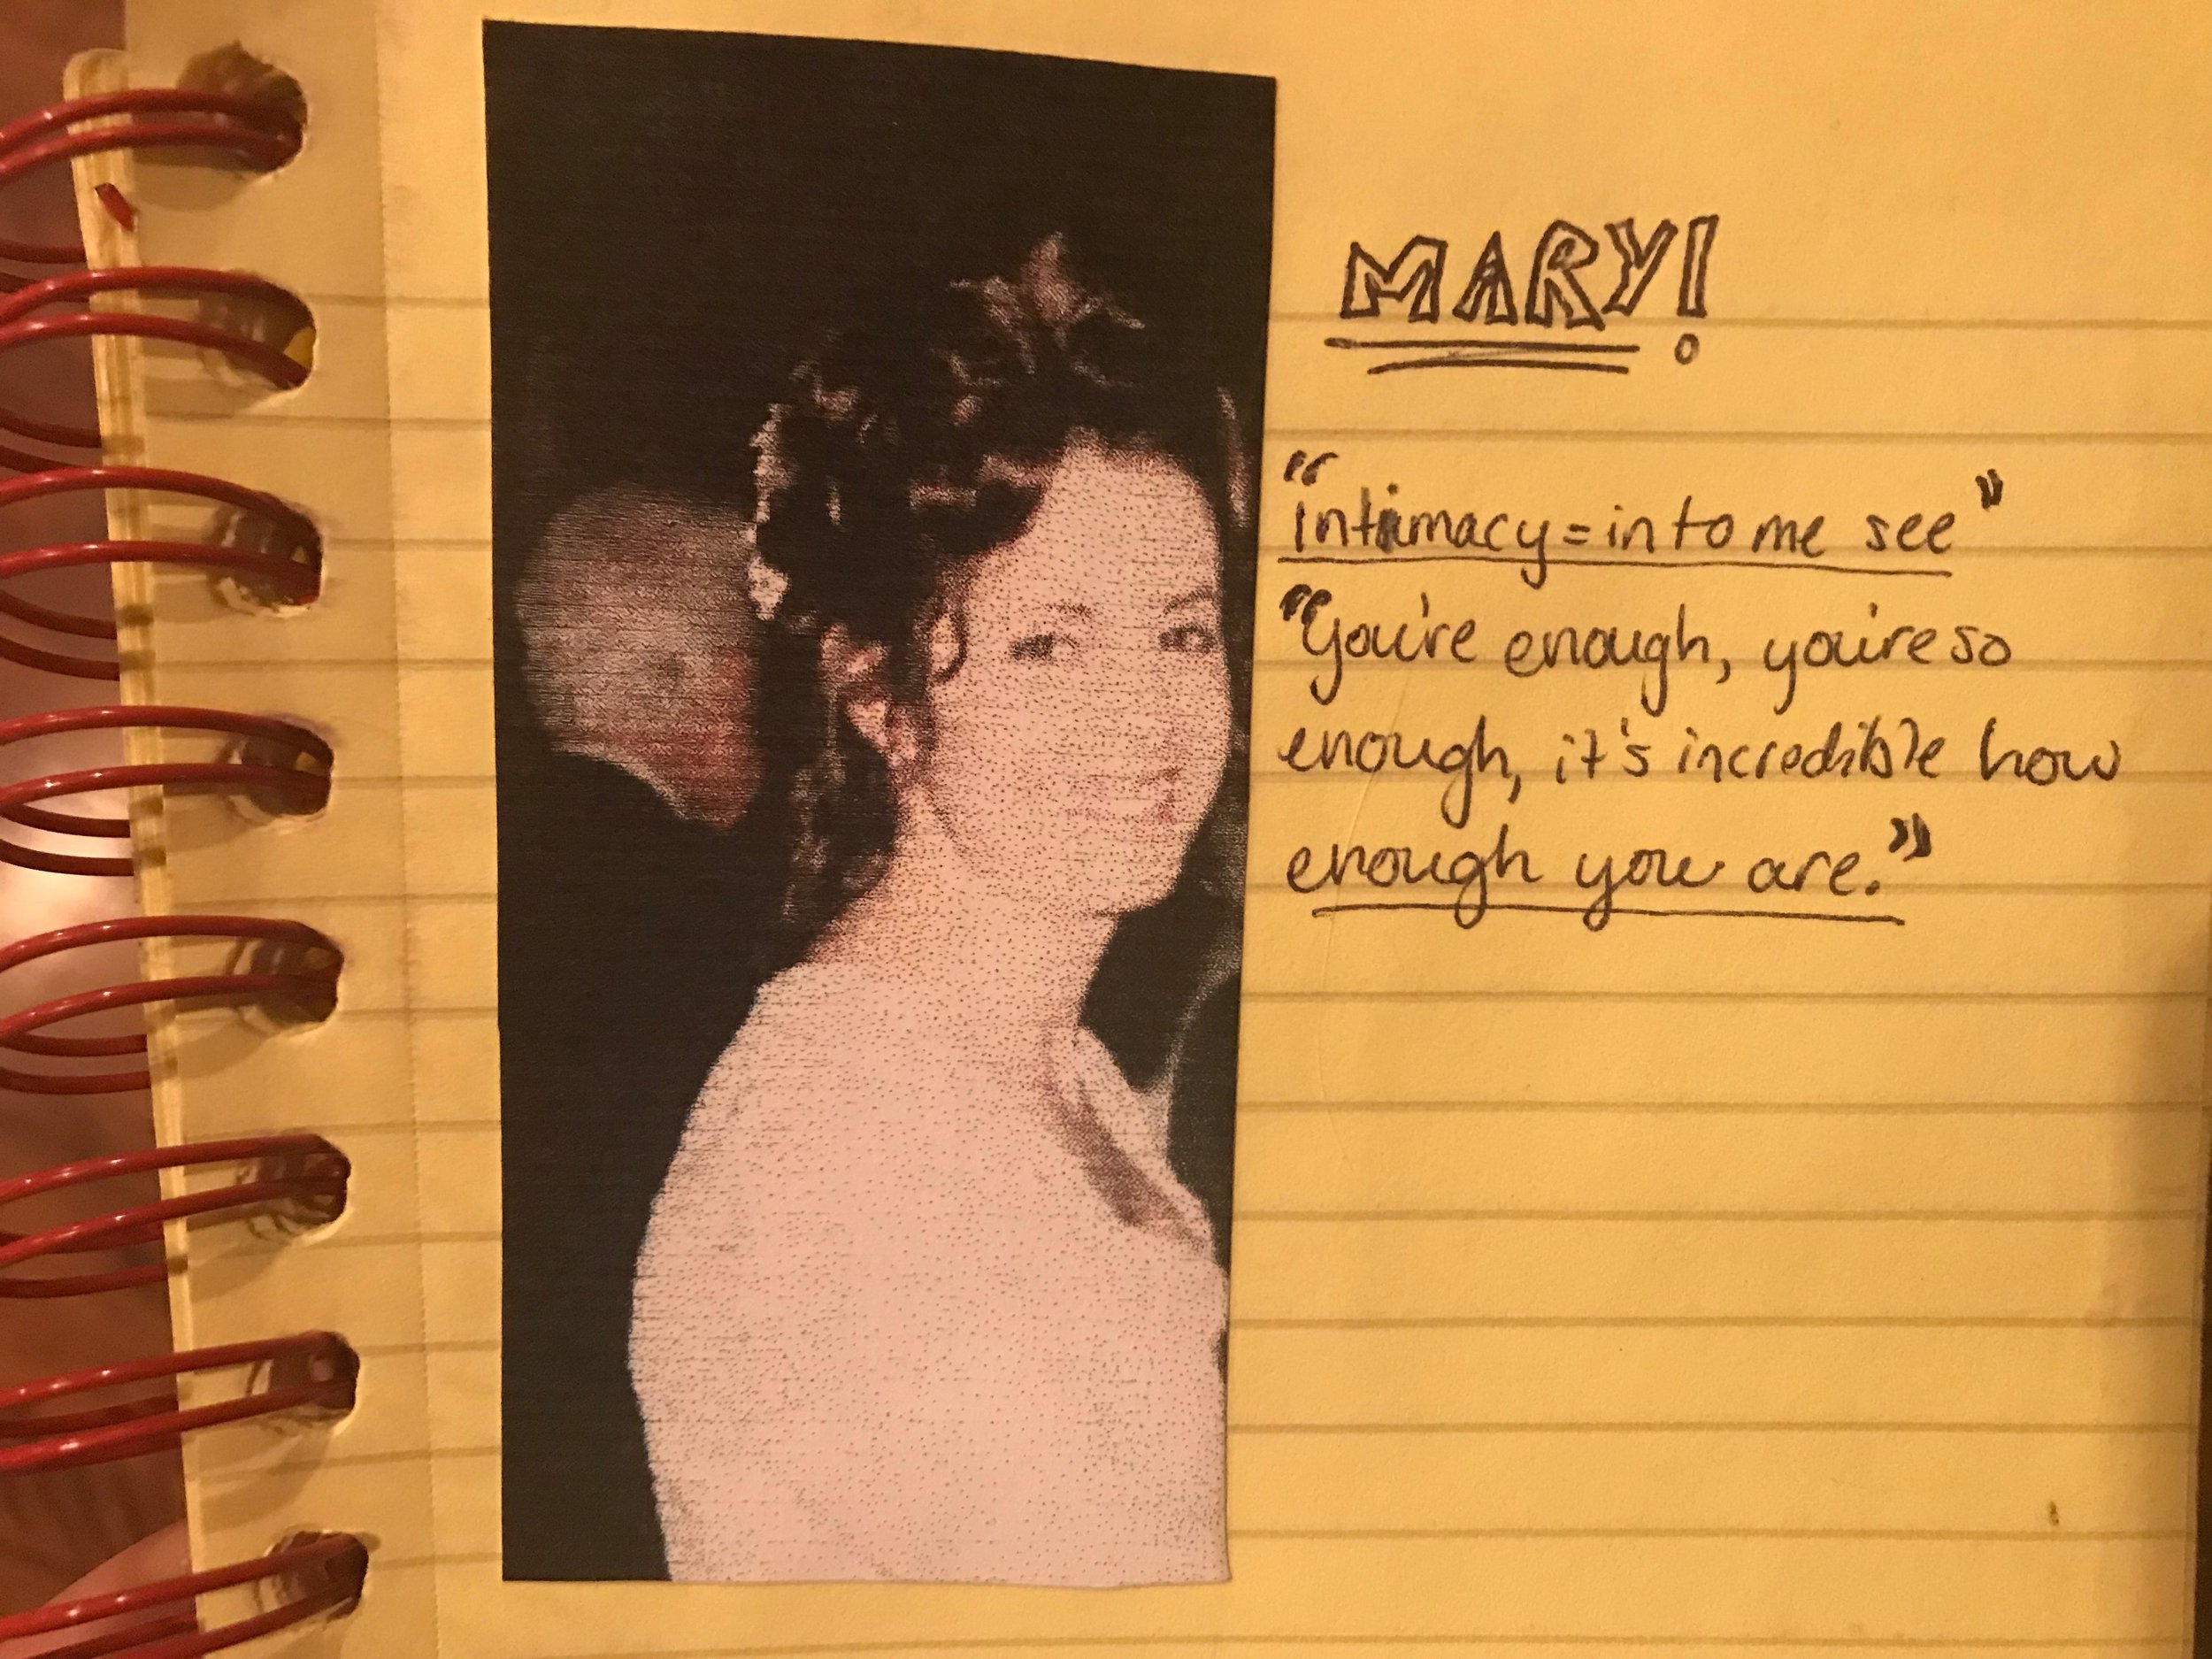 MARY!
"Intimacy = into me see"
"You're enough, you're so
enough, it's incredible how
enough you are."